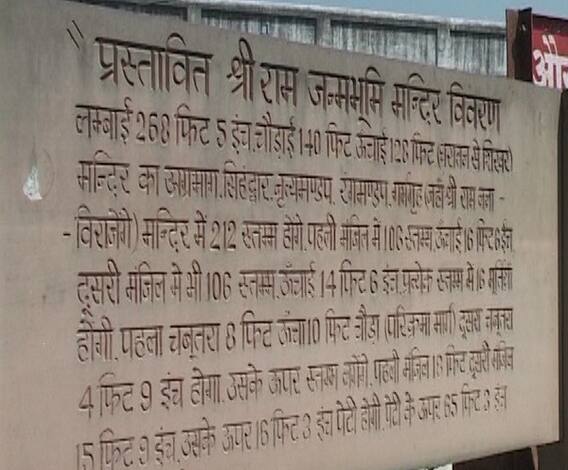 " प्रस्तावित श्री राम जन्मभूमि मन्दिर विवरण
लम्बाई 268 फिट 5 इंच.चौड़ाई 140 फिट ऊँचाई 128 फिट (धरातल से शिखर)
मन्दिर का अग्रभाग.सिंहद्वार.नृत्यमण्डप. रंगमण्डप.गर्भगृह (जहाँ श्री राम लला -
- विराजेंगे) मन्दिर में 212 स्तम्भ होंगे.पहली मंजिल में 106 स्तम्भ ऊँचाई 16 फिट 6 इंच
दूसरी मंजिल मे भी 106 स्तम्भ.ऊँचाई 14 फिट 6 इंच.प्रत्येक स्तम्भ में 16 मूर्तियां
होंगी.पहला चबूतरा 8 फिट ऊंचा 10 फिट चौड़ा (परिक्रमा मार्ग) दूसरा चबूतरा
4 फिट 9 इंच होगा.उसके ऊपर स्तम्भ लगेंगे. पहली मंजिल 18 फिट दूसरी मंजिल
15 फिट 9 इंच.उसके ऊपर 16 फिट 3 इंच पेटी होगी.पेटी के ऊपर 65 फिट 3 इंच